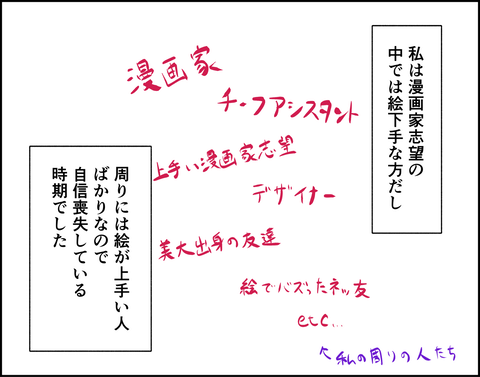 私は漫画家志望の
中では絵下手な方だし
漫画家
チーフアシスタント
上手い漫画家志望
デザイナー
美大出身の友達
絵でバズったネッ友
etc...
↑私の周りの人たち
周りには絵が上手い人
ばかりなので
自信喪失している
時期でした